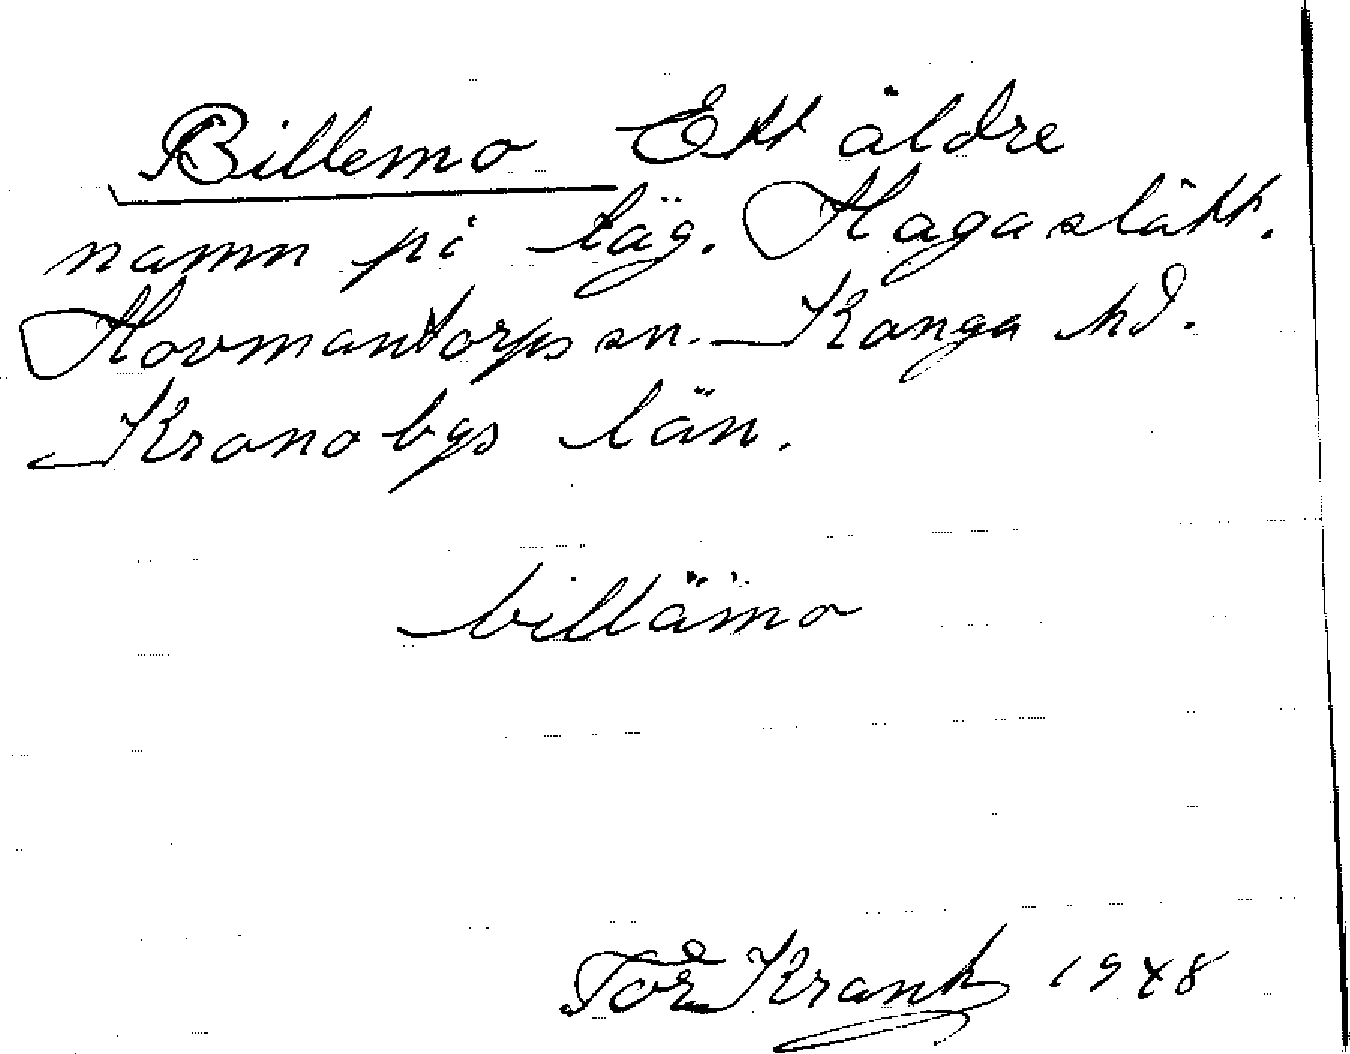 Billemo Ett äldre
namn på läg. Hagaslätt.
Hovmantorps sn. Konga hd.
Kronobgs län.
billämo
Tor Krantz 1948